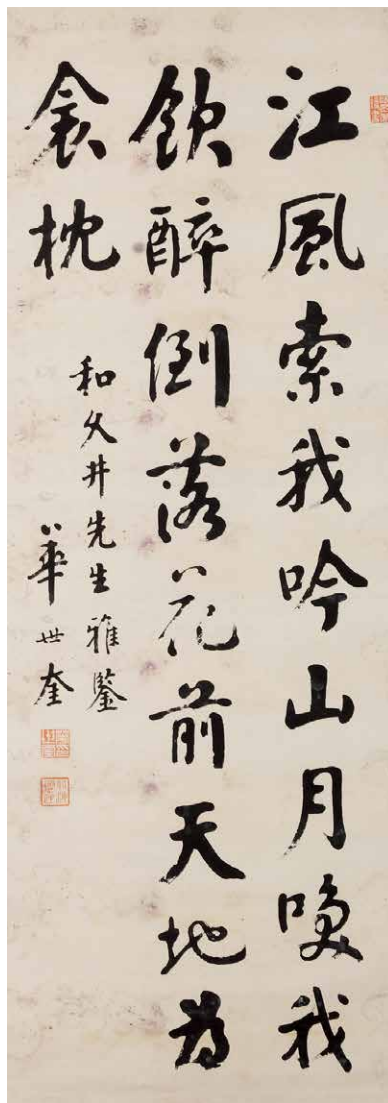 江風索我吟山月喚我
飲醉倒落花前天地為
衾枕
和久井先生雅鑒
華世奎